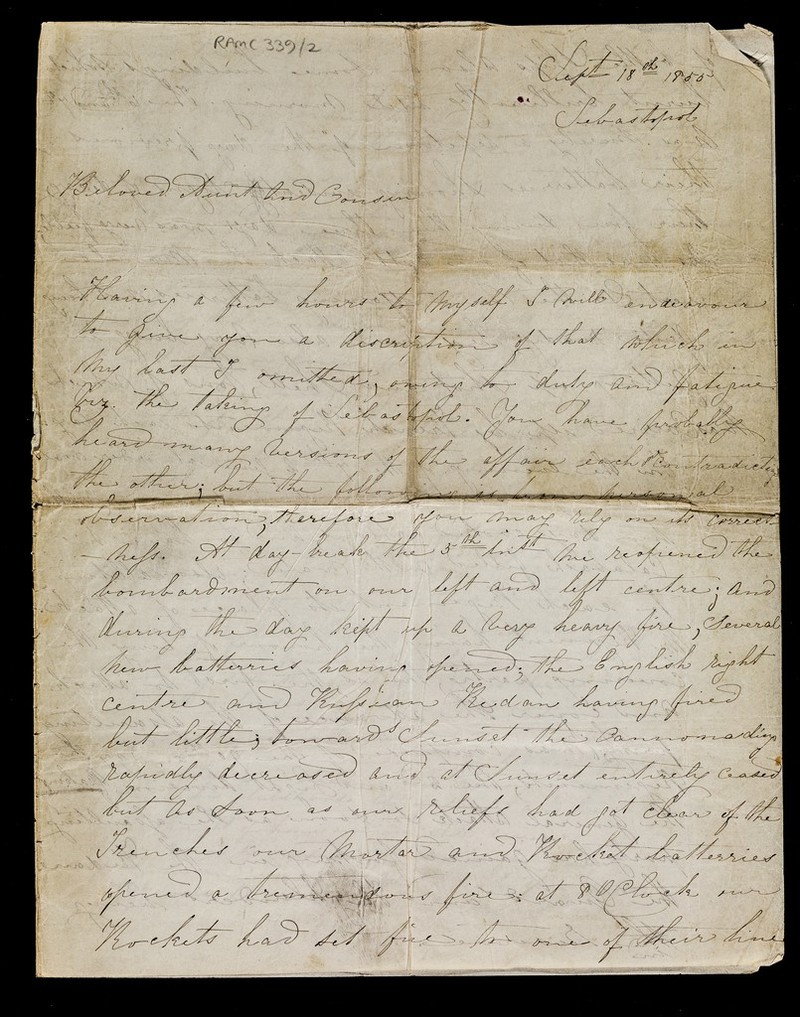 RAMC 339/2
Sept 18th 1855
Sebastopol
Beloved Aunt and Cousin
Having a few hours to myself I will endeavour
to give you a discription of that which in
my last I omitted, owing to duty and fatigue
Viz. the taking of Sebastopol. You have probably
heard many versions of the affair each contradicting
the other; but the following is from personal
observation, therefore you may rely on its correct
-ness. At day-break the 5th Instt we reopened the
bombardment on our left and left centre; and
during the day kept up a very heavy fire, several
new batterries having opened; the English right
centre and Russian Redan having fired
but little; towards Sunset the Cannonading
rapidly decreased and at Sunset entirely ceased
but as soon as our reliefs had got clear of the
Trenches our Mortar and Rocket batterries
opened a tremendous fire: at 8 OClock our
Rockets had set fire to one of their line